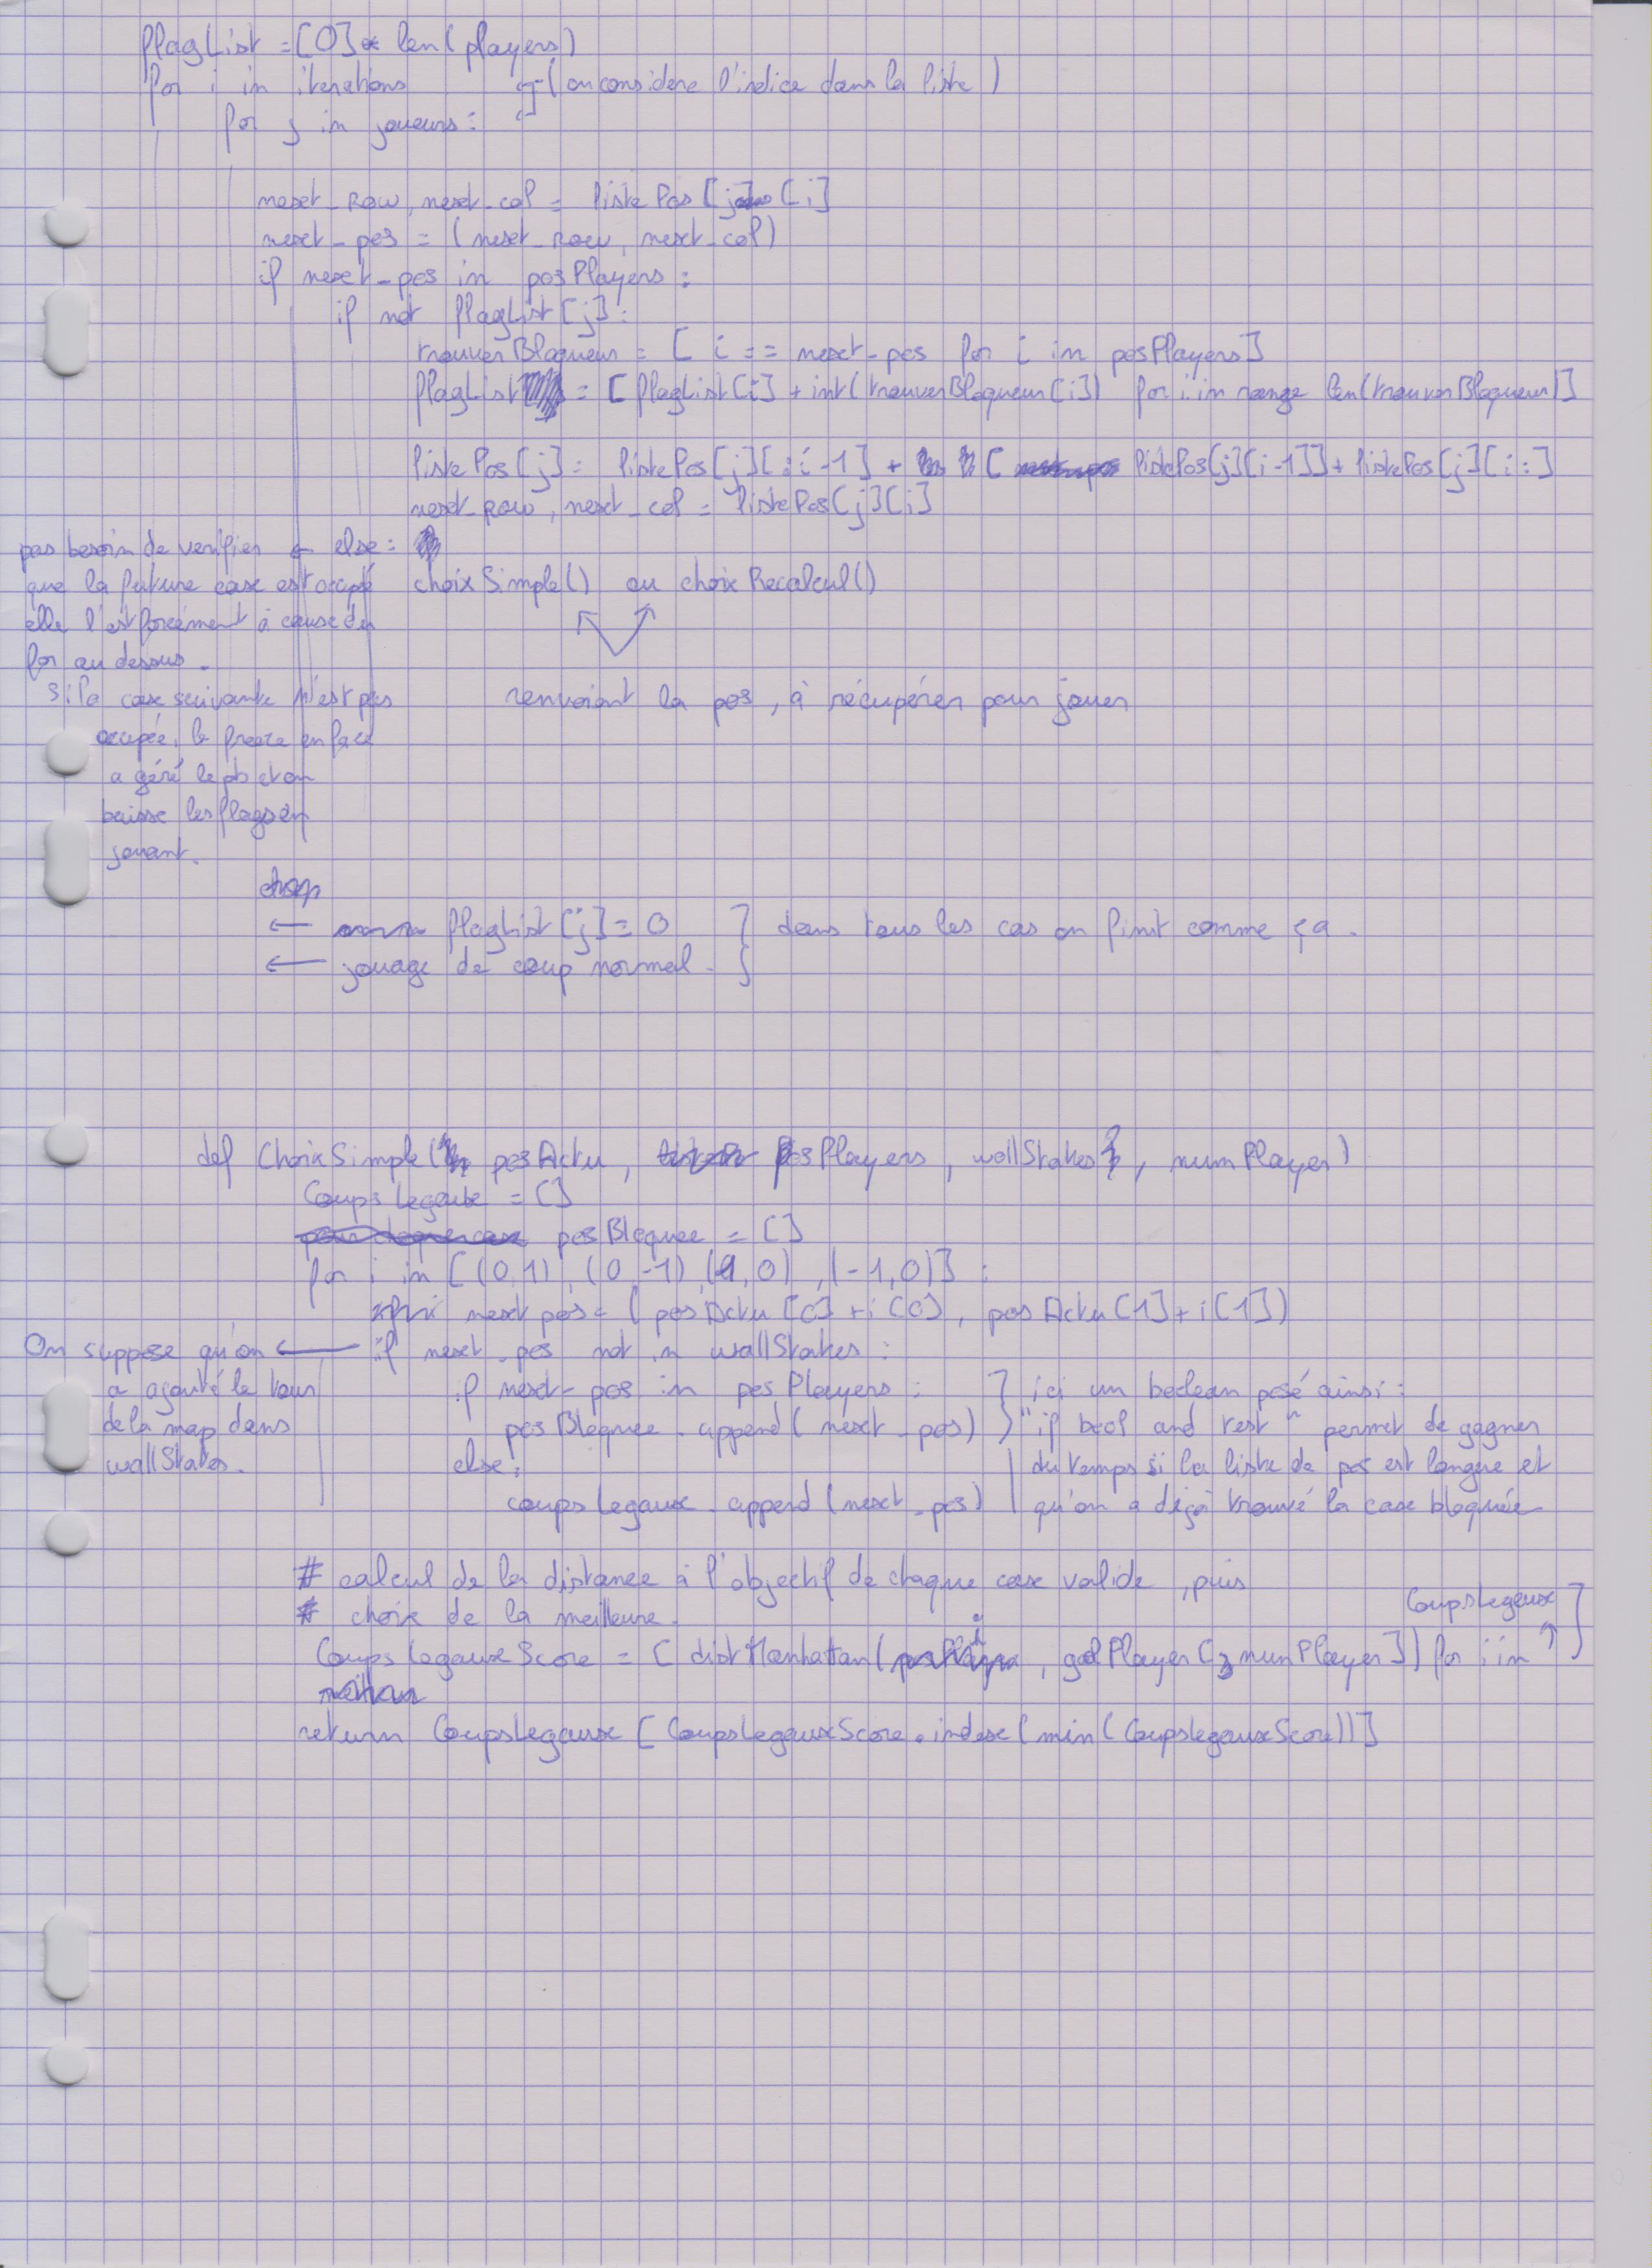 flagList = [0] * len(players)
for i in iterations
(on considère l'indice dans la liste)
for j in joueurs :
next_row, next_col = listePos[j][i]
next_pos = (next_row, next_col)
if next_pos in posPlayers :
if not flagList[j] :
trouverBloqueur = [ i == next_pos for i in posPlayers]
flagList = [ flagList[i] + int(trouverBloqueur[i]) for i in range len(trouverBloqueur)]
listePos[j] = listePos[j][:i-1] + [ listePos[j][i-1]] + listePos[j][i:]
next_row, next_col = listePos[j][i]
else :
choixSimple() ou choixRecalcul()
renvoiant la pos, à récupérer pour jouer
pas besoin de verifier ←
que la future case est occupé
elle l'est forcément à cause du
for au dessus.
Si la case suivante n'est pas
occupée, le freeze en face
a géré le pb et on
baisse les flags en
jouant.
← flagList[j] = 0
← jouage de coup normal.
} dans tous les cas on finit comme ça.
def ChoixSimple( posActu, posPlayers, wallStates, numPlayer)
CoupsLegaux = []
posBloquee = []
for i in [(0,1), (0,-1), (1,0), (-1,0)] :
next pos = ( posActu[0] + i[0], posActu[1] + i[1])
if next_pos not in wallStates :
On suppose qu'on ←
a ajouté le tour
de la map dans
wallStates.
if next_pos in posPlayers :
posBloquee.append( next_pos)
else :
coupsLegaux.append(next_pos)
ici un boolean posé ainsi :
"if bool and test" permet de gagner
du temps si la liste de pos est longue et
qu'on a déjà trouvé la case bloquée
# calcul de la distance à l'objectif de chaque case valide, puis
# choix de la meilleure.
CoupsLegauxScore = [ distManhattan( i, goalPlayer[numPlayer]) for i in CoupsLegaux ]
return CoupsLegaux [ CoupsLegauxScore.index(min(CoupsLegauxScore))]